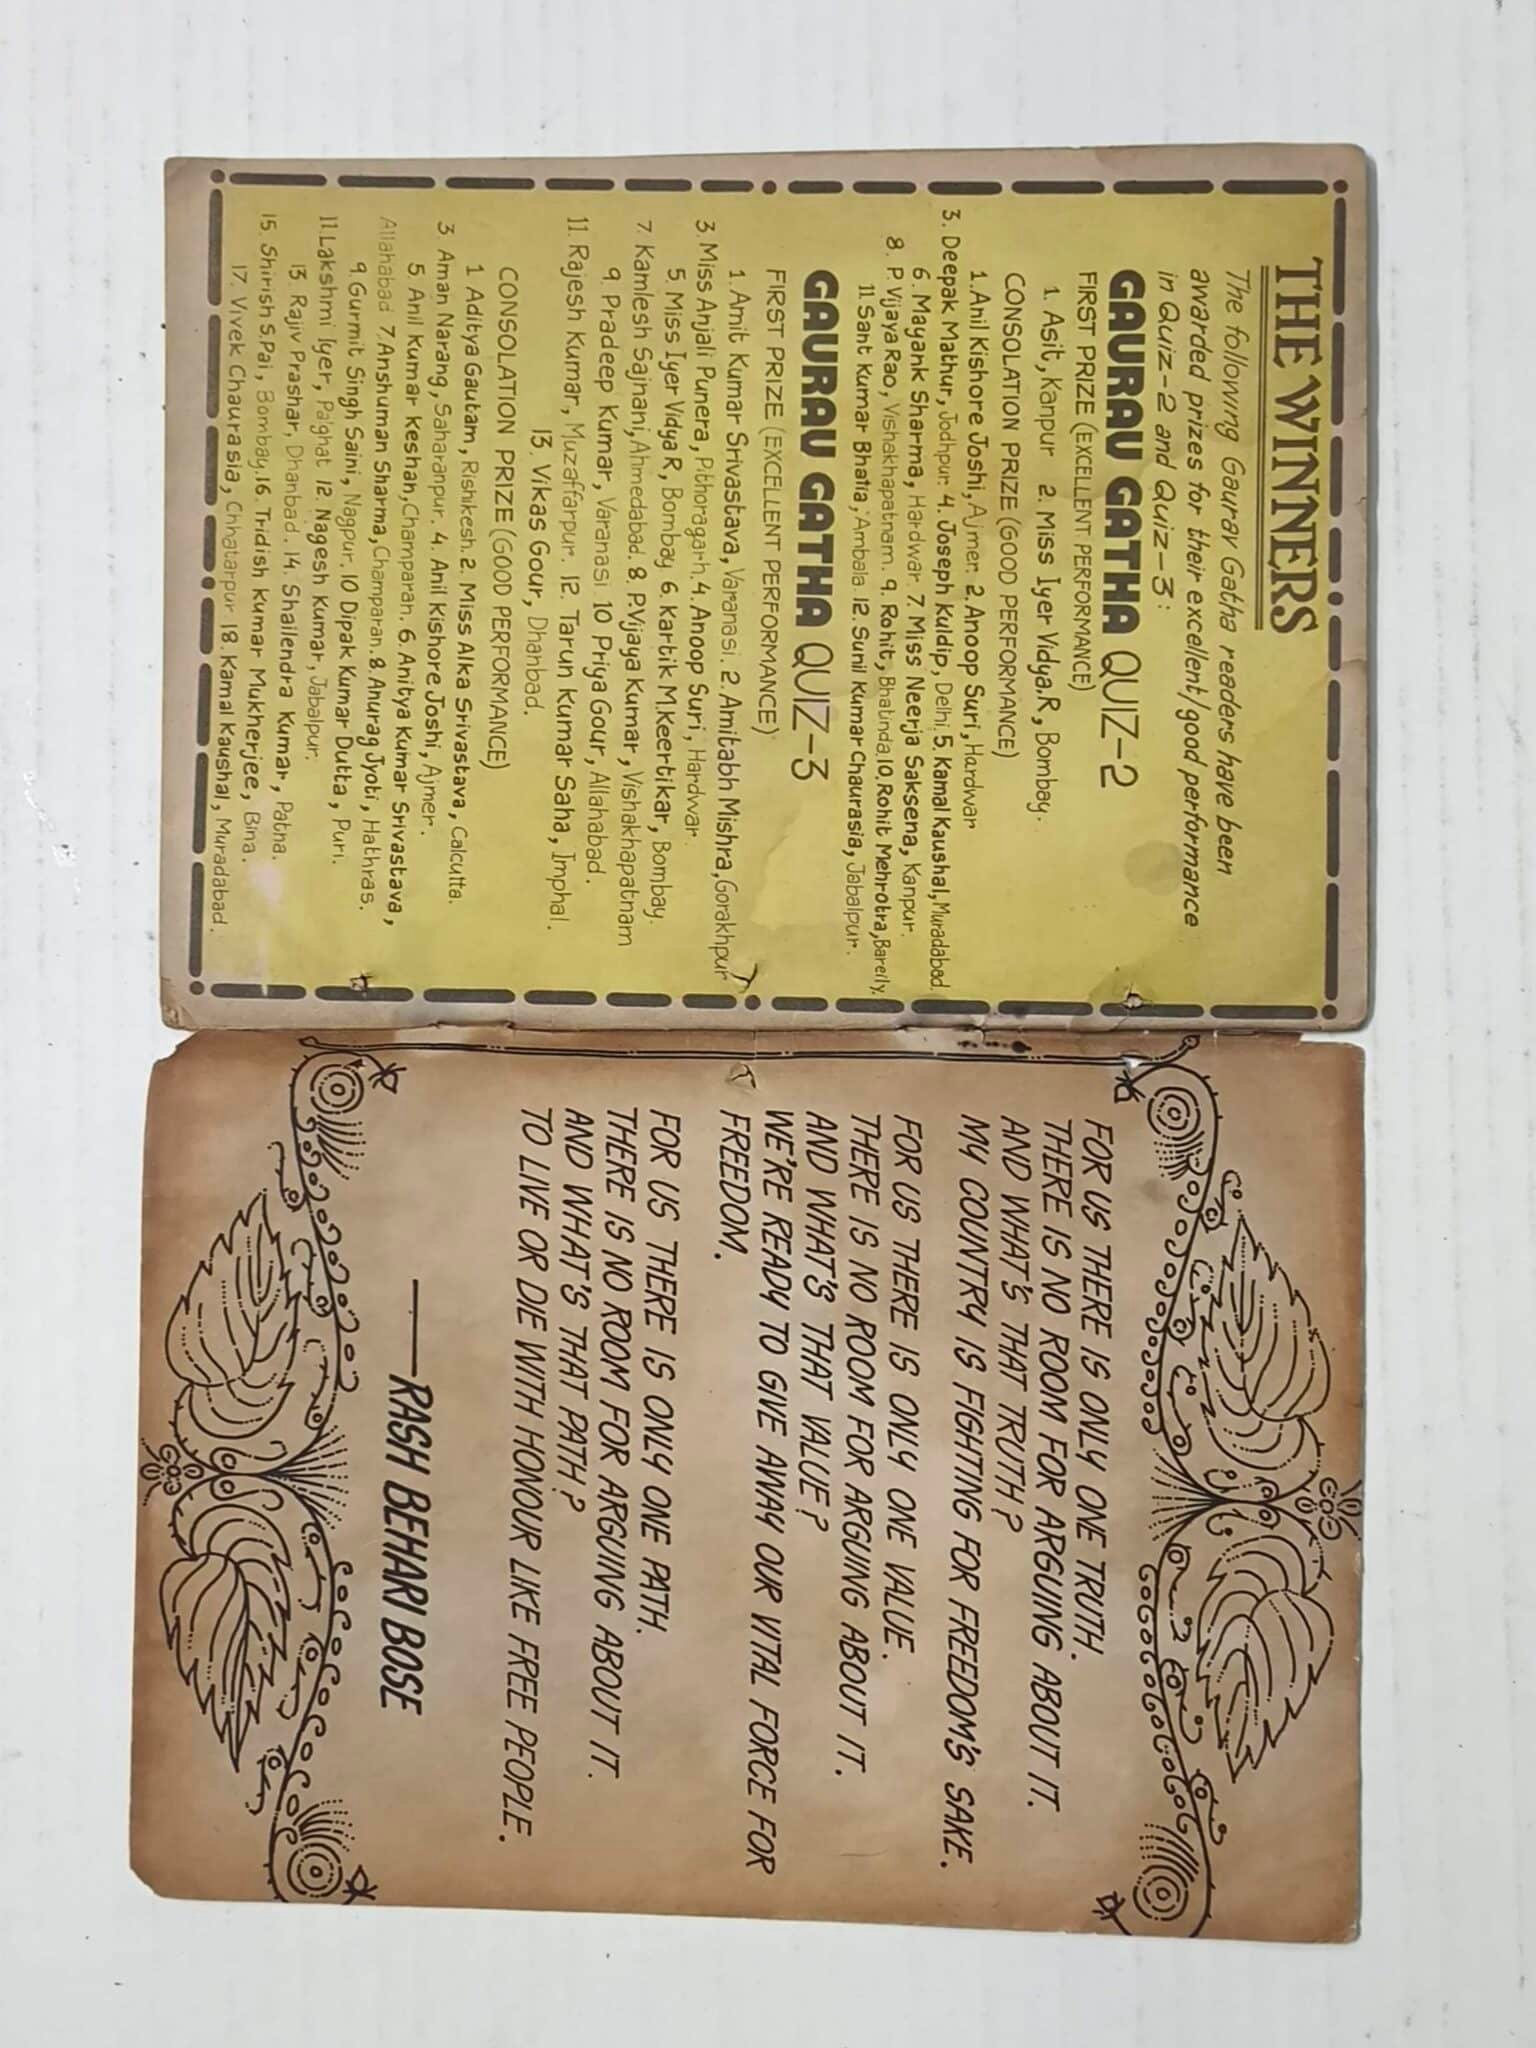 THE WINNERS
The following Gaurav Gatha readers have been
awarded prizes for their excellent/good performance
in Quiz-2 and Quiz-3:
GAURAV GATHA QUIZ-2
FIRST PRIZE (EXCELLENT PERFORMANCE)
1. Asit, Kanpur 2. Miss Iyer Vidya.R, Bombay.
CONSOLATION PRIZE (GOOD PERFORMANCE)
1. Anil Kishore Joshi, Ajmer. 2. Anoop Suri, Hardwar
3. Deepak Mathur, Jodhpur. 4. Joseph Kuldip, Delhi. 5. Kamal Kaushal, Muradabad.
6. Mayank Sharma, Hardwar. 7. Miss Neerja Saksena, Kanpur.
8. P. Vijaya Rao, Vishakhapatnam. 9. Rohit, Bhatinda. 10. Rohit Mehrotra, Bareily.
11. Sant Kumar Bhatia, Ambala. 12. Sunil Kumar Chaurasia, Jabalpur.
GAURAV GATHA QUIZ-3
FIRST PRIZE (EXCELLENT PERFORMANCE)
1. Amit Kumar Srivastava, Varanasi. 2. Amitabh Mishra, Gorakhpur
3. Miss Anjali Punera, Pithoragarh. 4. Anoop Suri, Hardwar
5. Miss Iyer Vidya R, Bombay 6. Kartik M.Keertikar, Bombay.
7. Kamlesh Sajnani, Ahmedabad. 8. P.Vijaya Kumar, Vishakhapatnam
9. Pradeep Kumar, Varanasi 10 Priya Gour, Allahabad.
11. Rajesh Kumar, Muzaffarpur. 12. Tarun Kumar Saha, Imphal.
13. Vikas Gour, Dhanbad.
CONSOLATION PRIZE (GOOD PERFORMANCE)
1 Aditya Gautam, Rishikesh. 2. Miss Alka Srivastava, Calcutta.
3. Aman Narang, Saharanpur. 4. Anil Kishore Joshi, Ajmer.
5 Anil Kumar Keshan, Champaran. 6. Anitya Kumar Srivastava,
Allahabad 7. Anshuman Sharma, Champaran. 8 Anurag Jyoti, Hathras.
9. Gurmit Singh Saini, Nagpur. 10 Dipak Kumar Dutta, Puri.
11. Lakshmi Iyer, Palghat 12. Nagesh Kumar, Jabalpur.
13. Rajiv Prashar, Dhanbad. 14. Shailendra Kumar, Patna.
15. Shirish S.Pai, Bombay. 16. Tridish Kumar Mukherjee, Bina.
17. Vivek Chaurasia, Chhatarpur 18. Kamal Kaushal, Muradabad.
FOR US THERE IS ONLY ONE TRUTH.
THERE IS NO ROOM FOR ARGUING ABOUT IT.
AND WHAT'S THAT TRUTH?
MY COUNTRY IS FIGHTING FOR FREEDOM'S SAKE.
FOR US THERE IS ONLY ONE VALUE.
THERE IS NO ROOM FOR ARGUING ABOUT IT.
AND WHAT'S THAT VALUE?
WE'RE READY TO GIVE AWAY OUR VITAL FORCE FOR
FREEDOM.
FOR US THERE IS ONLY ONE PATH.
THERE IS NO ROOM FOR ARGUING ABOUT IT.
AND WHAT'S THAT PATH?
TO LIVE OR DIE WITH HONOUR LIKE FREE PEOPLE.
—RASH BEHARI BOSE